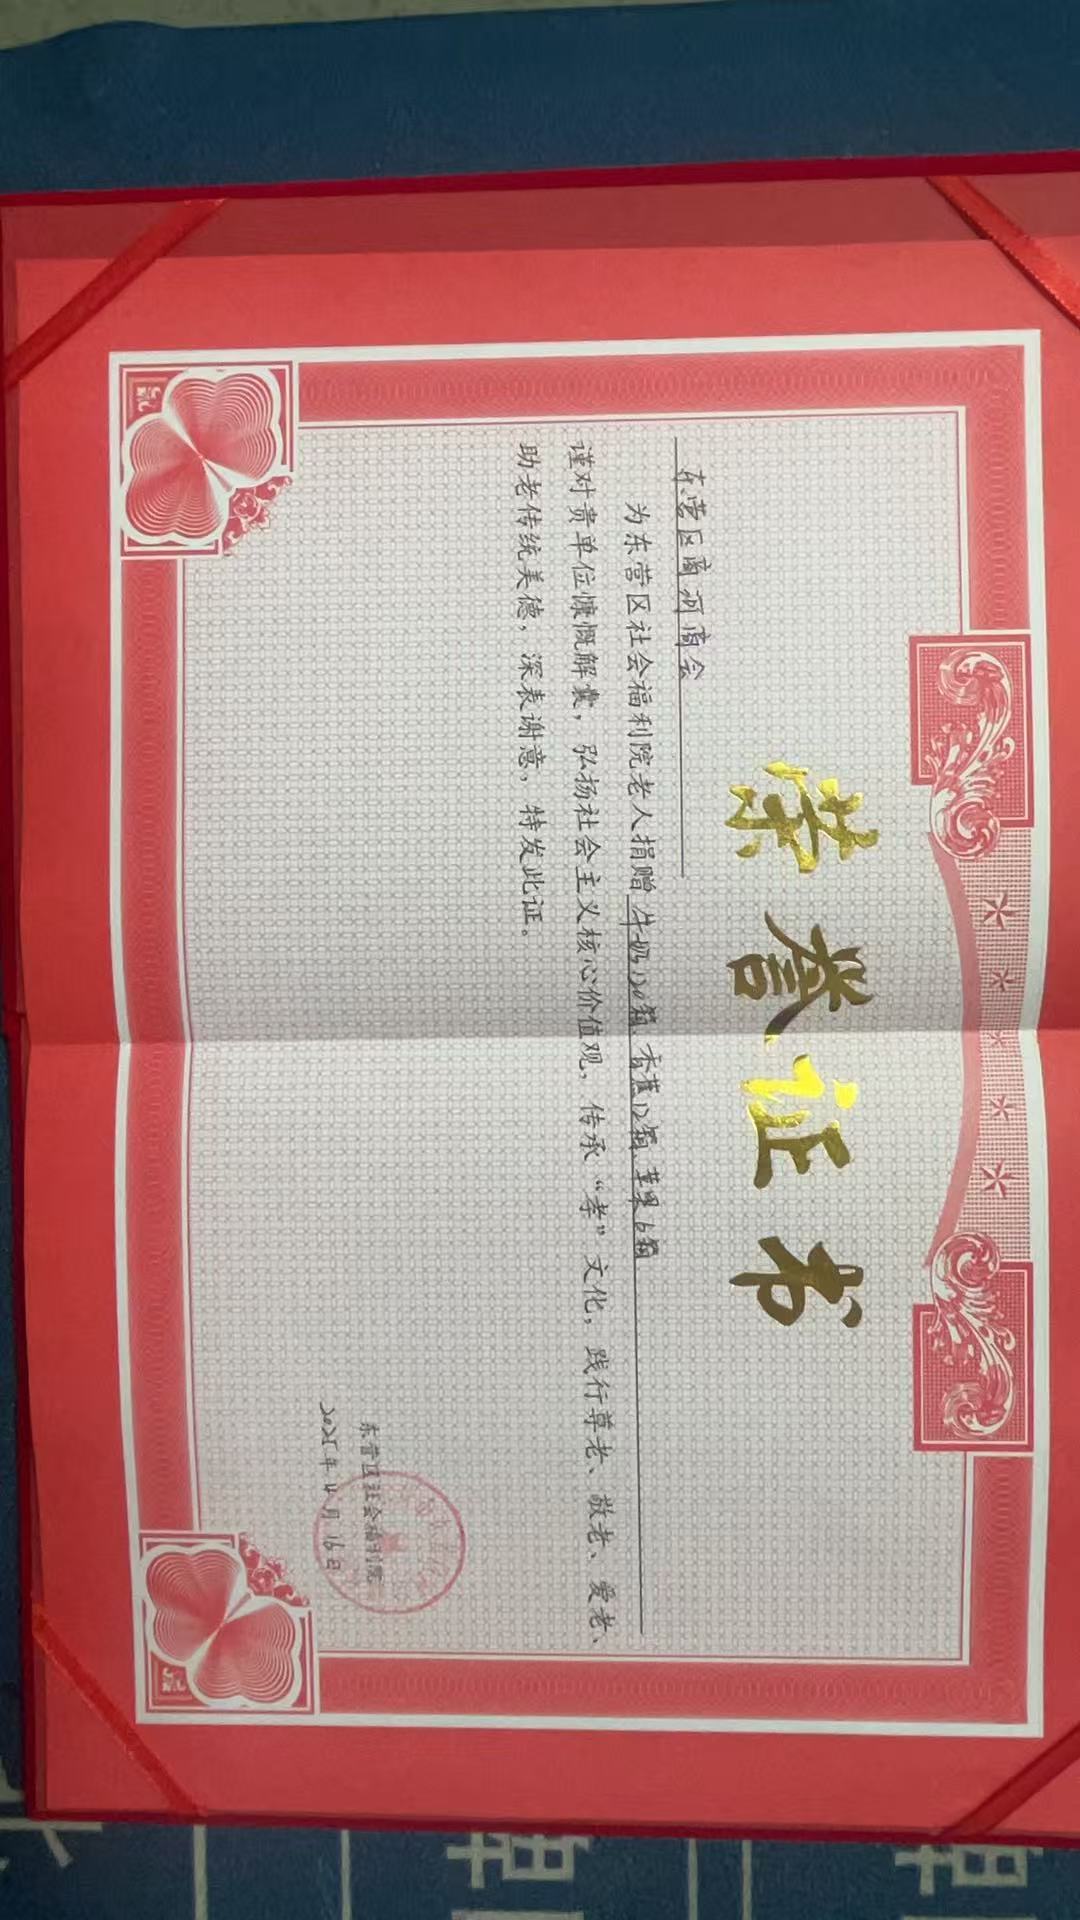 荣誉证书
东营区商河商会
为东营区社会福利院老人捐赠牛奶120箱、香蕉12箱、苹果6箱
谨对贵单位慷慨解囊，弘扬社会主义核心价值观，传承“孝”文化，践行尊老、敬老、爱老、
助老传统美德，深表谢意，特发此证。
东营区社会福利院
2025年4月16日